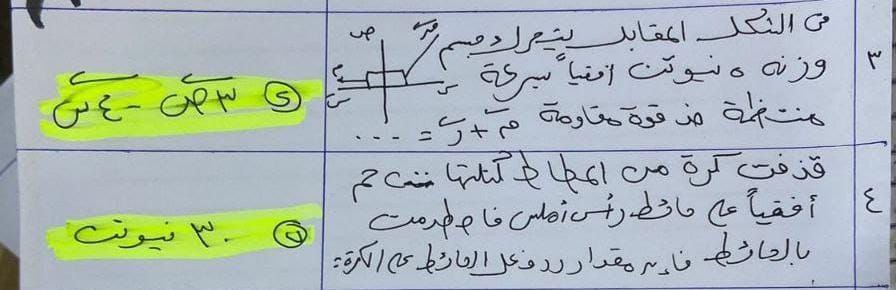 ٣
فى الشكل المقابل يتحرك جسم
وزنه ٥ نيوتن أفقياً بسرعة
منتظمة ضد قوة مقاومة م + ر = ...
ص
م
س
س
(٢) ٣ ص - ٤ س
٤
قذفت كرة من المطاط كتلتها
أفقياً على حائط رأسى أملس فاصطدمت
بالحائط فإن مقدار رد فعل الحائط على الكرة =
٣٠ نيوتن